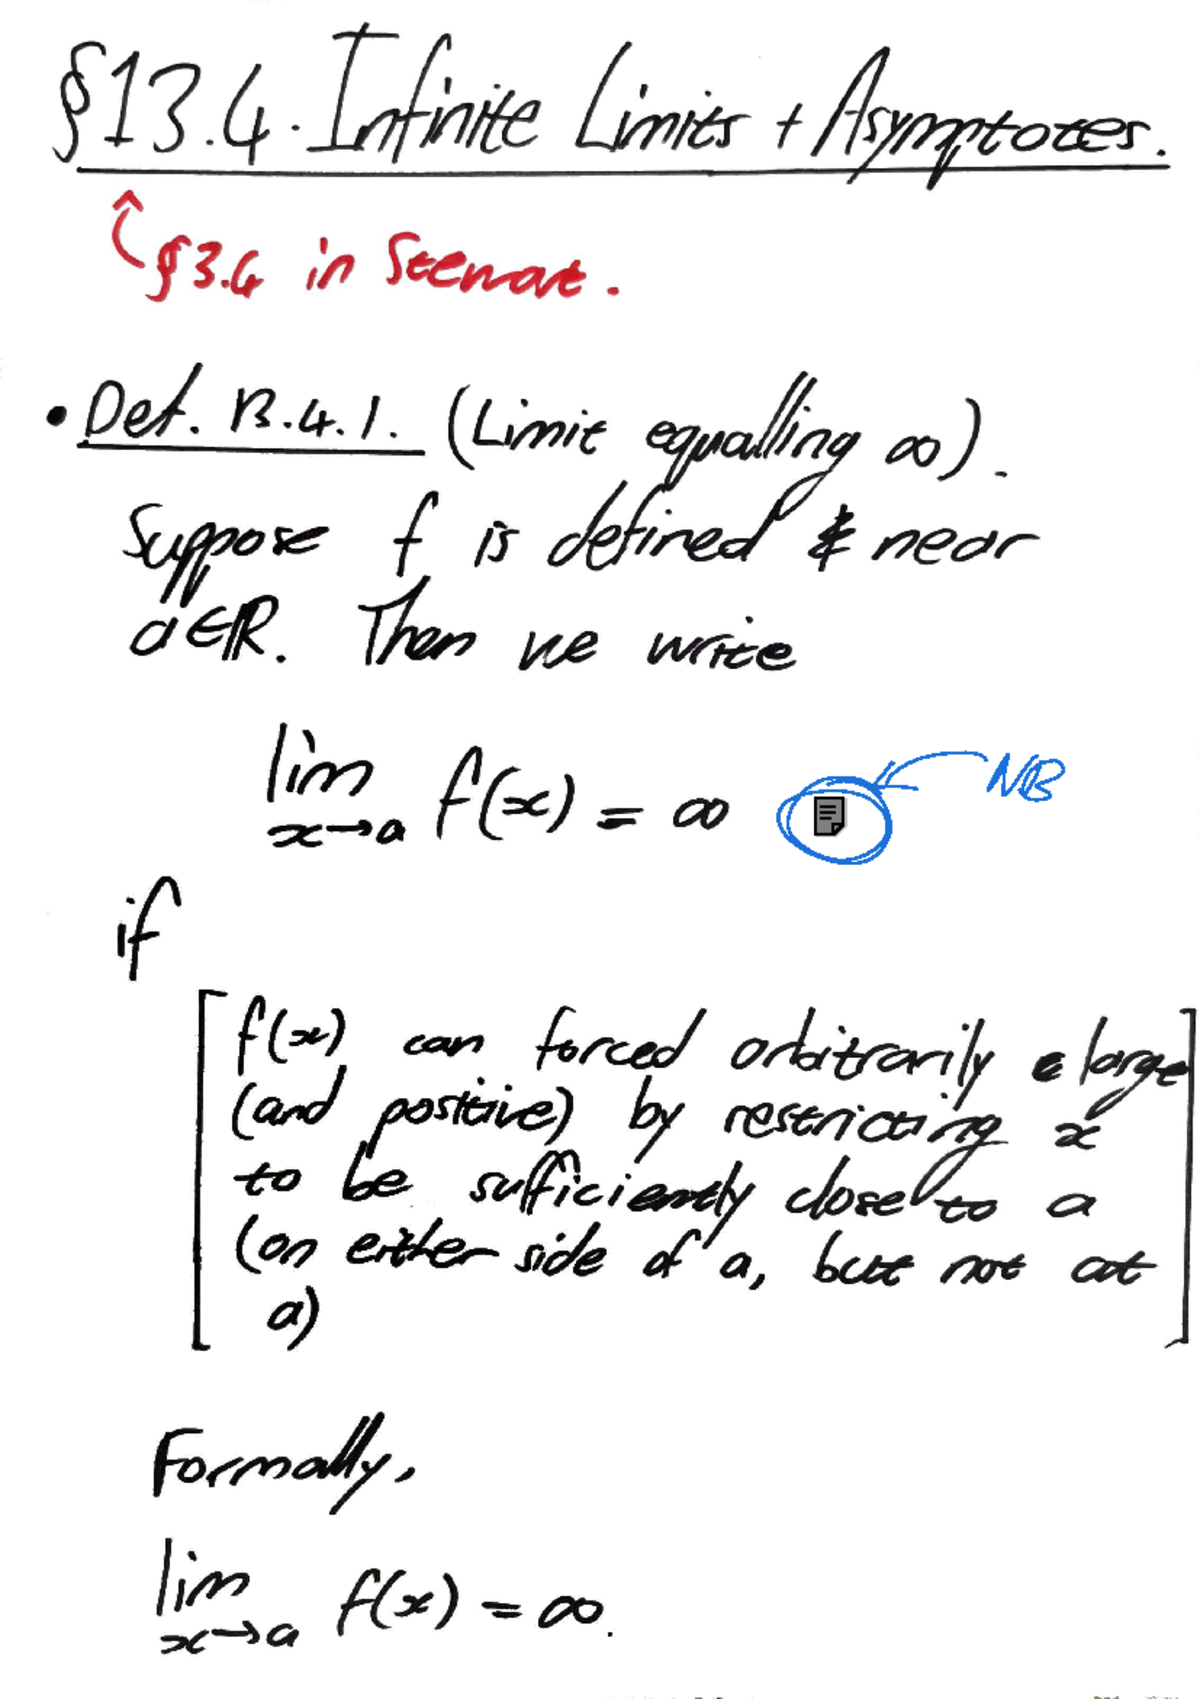 §13.4. Infinite Limits + Asymptotes.
§3.4 in Stewart.
• Def. 13.4.1. (Limit equalling ∞).
Suppose f is defined & near
a∈ℝ. Then we write
lim f(x) = ∞ NB
x→a
if
f(x) can forced arbitrarily large
(and positive) by restricting x
to be sufficiently close to a
(on either side of a, but not at
a)
Formally,
lim f(x) = ∞.
x→a